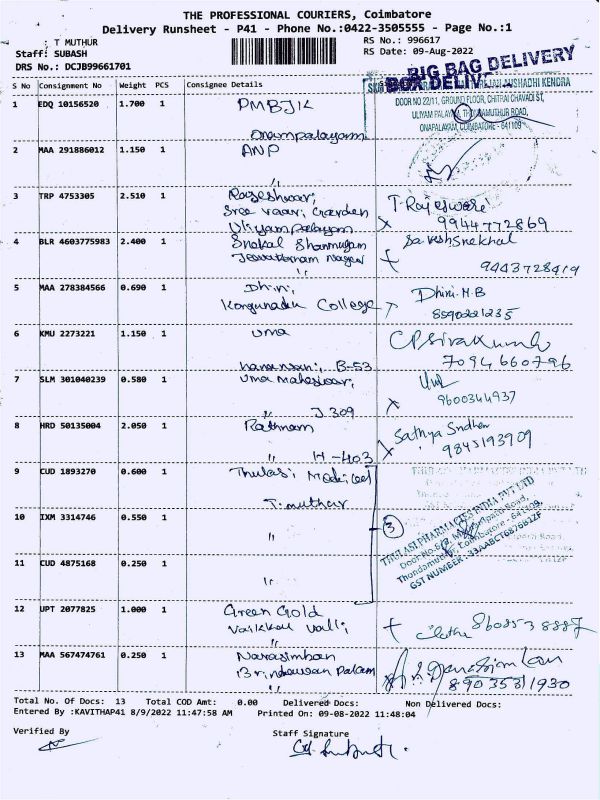 THE PROFESSIONAL COURIERS, Coimbatore
Delivery Runsheet - P41 - Phone No.:0422-3505555 - Page No.:1
: T MUTHUR
Staff: SUBASH
DRS No.: DCJB99661701
RS No.: 996617
RS Date: 09-Aug-2022
BIG BAG DELIVERY
BOX DELIV
AUSHADHI KENDRA
DOOR NO 22/11, GROUND FLOOR, CHITRAI CHAVADI ST,
ULIYAM PALAYAM, THONDAMUTHUR ROAD,
ONAPALAYAM, COIMBATORE - 641109
S No Consignment No Weight PCS Consignee Details
1 EDQ 10156520 1.700 1 PMBJK
Onampalayam
2 MAA 291886012 1.150 1 ANP
"
3 TRP 4753305 2.510 1 Rajeshwari,
Sree Vaari Garden
Uliyampalayam
T. Rajeswari
9944772869
4 BLR 4603775983 2.400 1 Snekal Shanmugam
Jeswathnam Nagar
"
SarveshSnekhal
9443728419
5 MAA 278384566 0.690 1 Dhini,
Kongunadu College
Dhini. M.B
8590221235
6 KMU 2273221 1.150 1 Uma
B-53
CPSivakumar
7094660796
7 SLM 301040239 0.580 1 Uma Maheswari,
" J 309
Uma
9600344937
8 HRD 50135004 2.050 1 Rathnam
" H-403
Sathya Sndhar
9843193909
9 CUD 1893270 0.600 1 Thulasi Medical
T. muthur
10 IXM 3314746 0.550 1 "
11 CUD 4875168 0.250 1 "
3
THULASI PHARMACIES INDIA PVT LTD
Door No.6/3, Main Road,
Thondamuthur, Coimbatore - 641109.
GST NUMBER : 33AABCT6876B1ZF
12 UPT 2077825 1.000 1 Green Gold
Vaikkal Valli,
"
8608538887
13 MAA 567474761 0.250 1 Narasimhan
Brindawan Palam
8903531930
Total No. Of Docs: 13 Total COD Amt: 0.00 Delivered Docs: Non Delivered Docs:
Entered By :KAVITHAP41 8/9/2022 11:47:58 AM Printed On: 09-08-2022 11:48:04
Verified By
Staff Signature